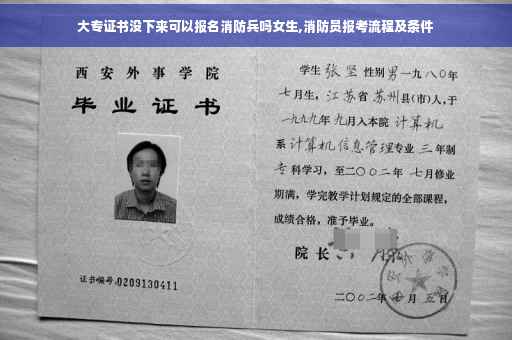 大专证书没下来可以报名消防兵吗女生,消防员报考流程及条件
西安外事学院
毕业证书
证书编号:0209130411
学生 张坚 性别 男 一九八〇年
七月生, 江苏省 苏州县(市)人,于
一九九九年 九月入本院 计算机
系 计算机信息管理专业 三 年制
专科学习,至二〇〇二年 七月修业
期满,学完教学计划规定的全部课程,
成绩合格,准予毕业。
院长
二〇〇二年 七月 五日